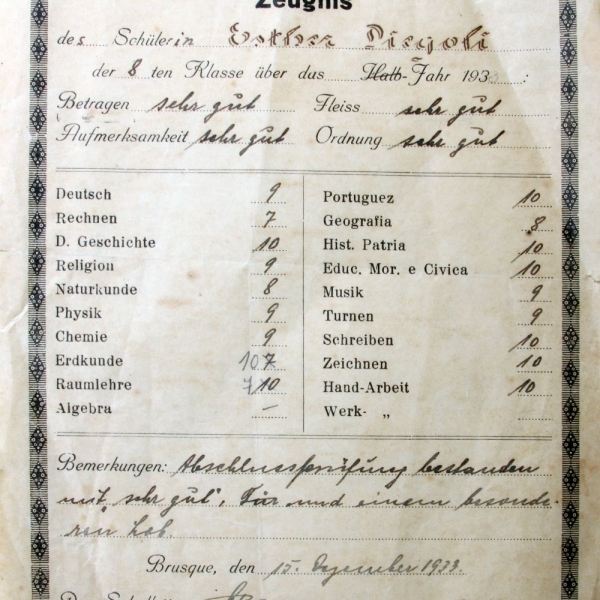 Zeugnis
des Schülerin Esther Piegoli
der 8 ten Klasse über das Halb-Jahr 193 :
Betragen sehr gut Fleiss sehr gut
Aufmerksamkeit sehr gut Ordnung sehr gut
Deutsch 9 Portuguez 10
Rechnen 7 Geografia 8
D. Geschichte 10 Hist. Patria 10
Religion 9 Educ. Mor. e Civica 10
Naturkunde 8 Musik 9
Physik 9 Turnen 9
Chemie 9 Schreiben 10
Erdkunde 10 7 Zeichnen 10
Raumlehre 7 10 Hand-Arbeit 10
Algebra – Werk- „
Bemerkungen: Abschlussprüfung bestanden
mit „sehr gut", und einem besonde-
ren Lob.
Brusque, den 15. Dezember 1933.